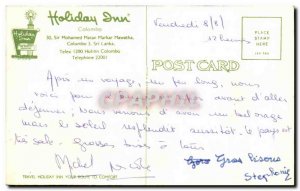 Holiday Inn
Colombo
30, Sir Mohamed Macan Markar Mawatha,
Colombo 3, Sri Lanka.
Telex 1200 Holinn Colombo
Telephone 22001
Vendredi 8/8/
12 heures
PLACE
STAMP
HERE
POST CARD
Après un voyage, un peu long, nous
voici pour avant d'aller
déjeuner. Nous venons d'avoir un bel orage
mais le soleil resplendit aussitôt, le pays est
très sale. Grosses bises à tous
Michel Nicole
Gros Bisous
Stéphanie
TRAVEL HOLIDAY INN YOUR ROUTE TO COMFORT